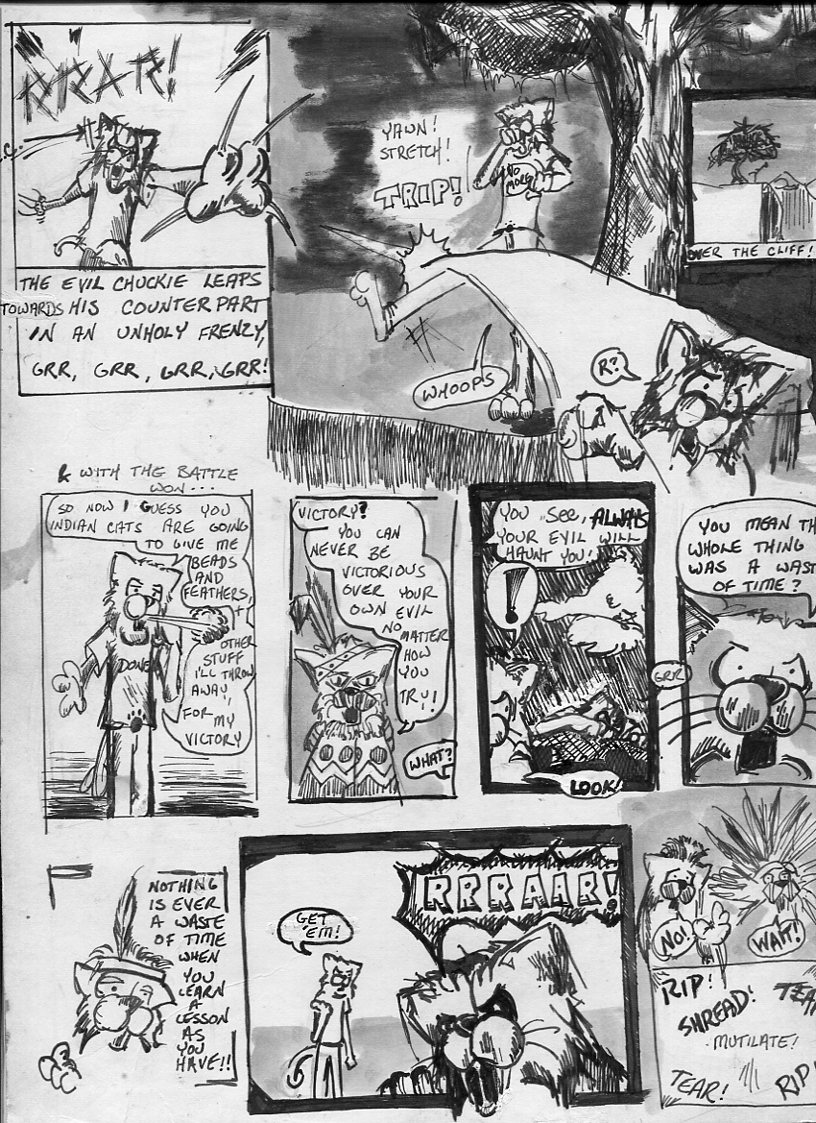 RRAR!
THE EVIL CHUCKIE LEAPS
TOWARDS HIS COUNTERPART
IN AN UNHOLY FRENZY,
GRR, GRR, GRR, GRR!
YAWN!
STRETCH!
TRIP!
NO
MORE
WHOOPS
R?
OVER THE CLIFF!
& WITH THE BATTLE
WON...
SO NOW I GUESS YOU
INDIAN CATS ARE GOING
TO GIVE ME
BEADS
AND
FEATHERS,
+
OTHER
STUFF
I'LL THROW
AWAY,
FOR
MY
VICTORY
DONE
VICTORY?
YOU CAN
NEVER BE
VICTORIOUS
OVER YOUR
OWN EVIL
NO
MATTER
HOW
YOU
TRY!
WHAT?
YOU SEE, ALWAYS
YOUR EVIL WILL
HAUNT YOU!
!
LOOK!
YOU MEAN TH
WHOLE THING
WAS A WAST
OF TIME?
GRR
NOTHING
IS EVER
A WASTE
OF TIME
WHEN
YOU
LEARN
A
LESSON
AS
YOU
HAVE!!
GET
'EM!
RRRAAR!
NO!
WAIT!
RIP!
TEAR
SHRED!
MUTILATE!
TEAR!
RIP!